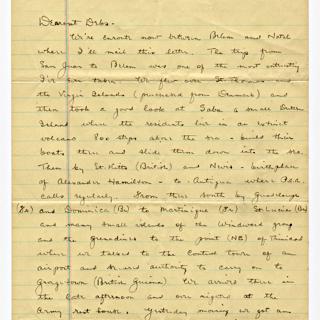 Dearest Debs -
We're enroute now between Belem and Natal
where I'll mail this letter. The trip from
San Juan to Belem was one of the most interesting
I've ever taken. We flew over St. Thomas and
the Virgin Islands (purchased from Denmark) and
then took a good look at Saba a small Dutch
Island where the residents live in an extinct
volcano 800 steps above the sea - build their
boats there and slide them down into the sea.
Then by St. Kitts (British) and Nevis - birthplace
of Alexander Hamilton - to Antigua where
calls regularly. From there south by Guadeloupe
(Fr) and Dominica (Br) to Martinique (Fr) St Lucia (Br)
and many small islands of the Windward group
and the Grenadines to the point (NE) of Trinidad
where we talked to the Control tower of an
airport and secured authority to carry on to
Georgetown (British Guiana). We arrived there in
the late afternoon and over nighted at the
Army rest house. Yesterday morning we got an